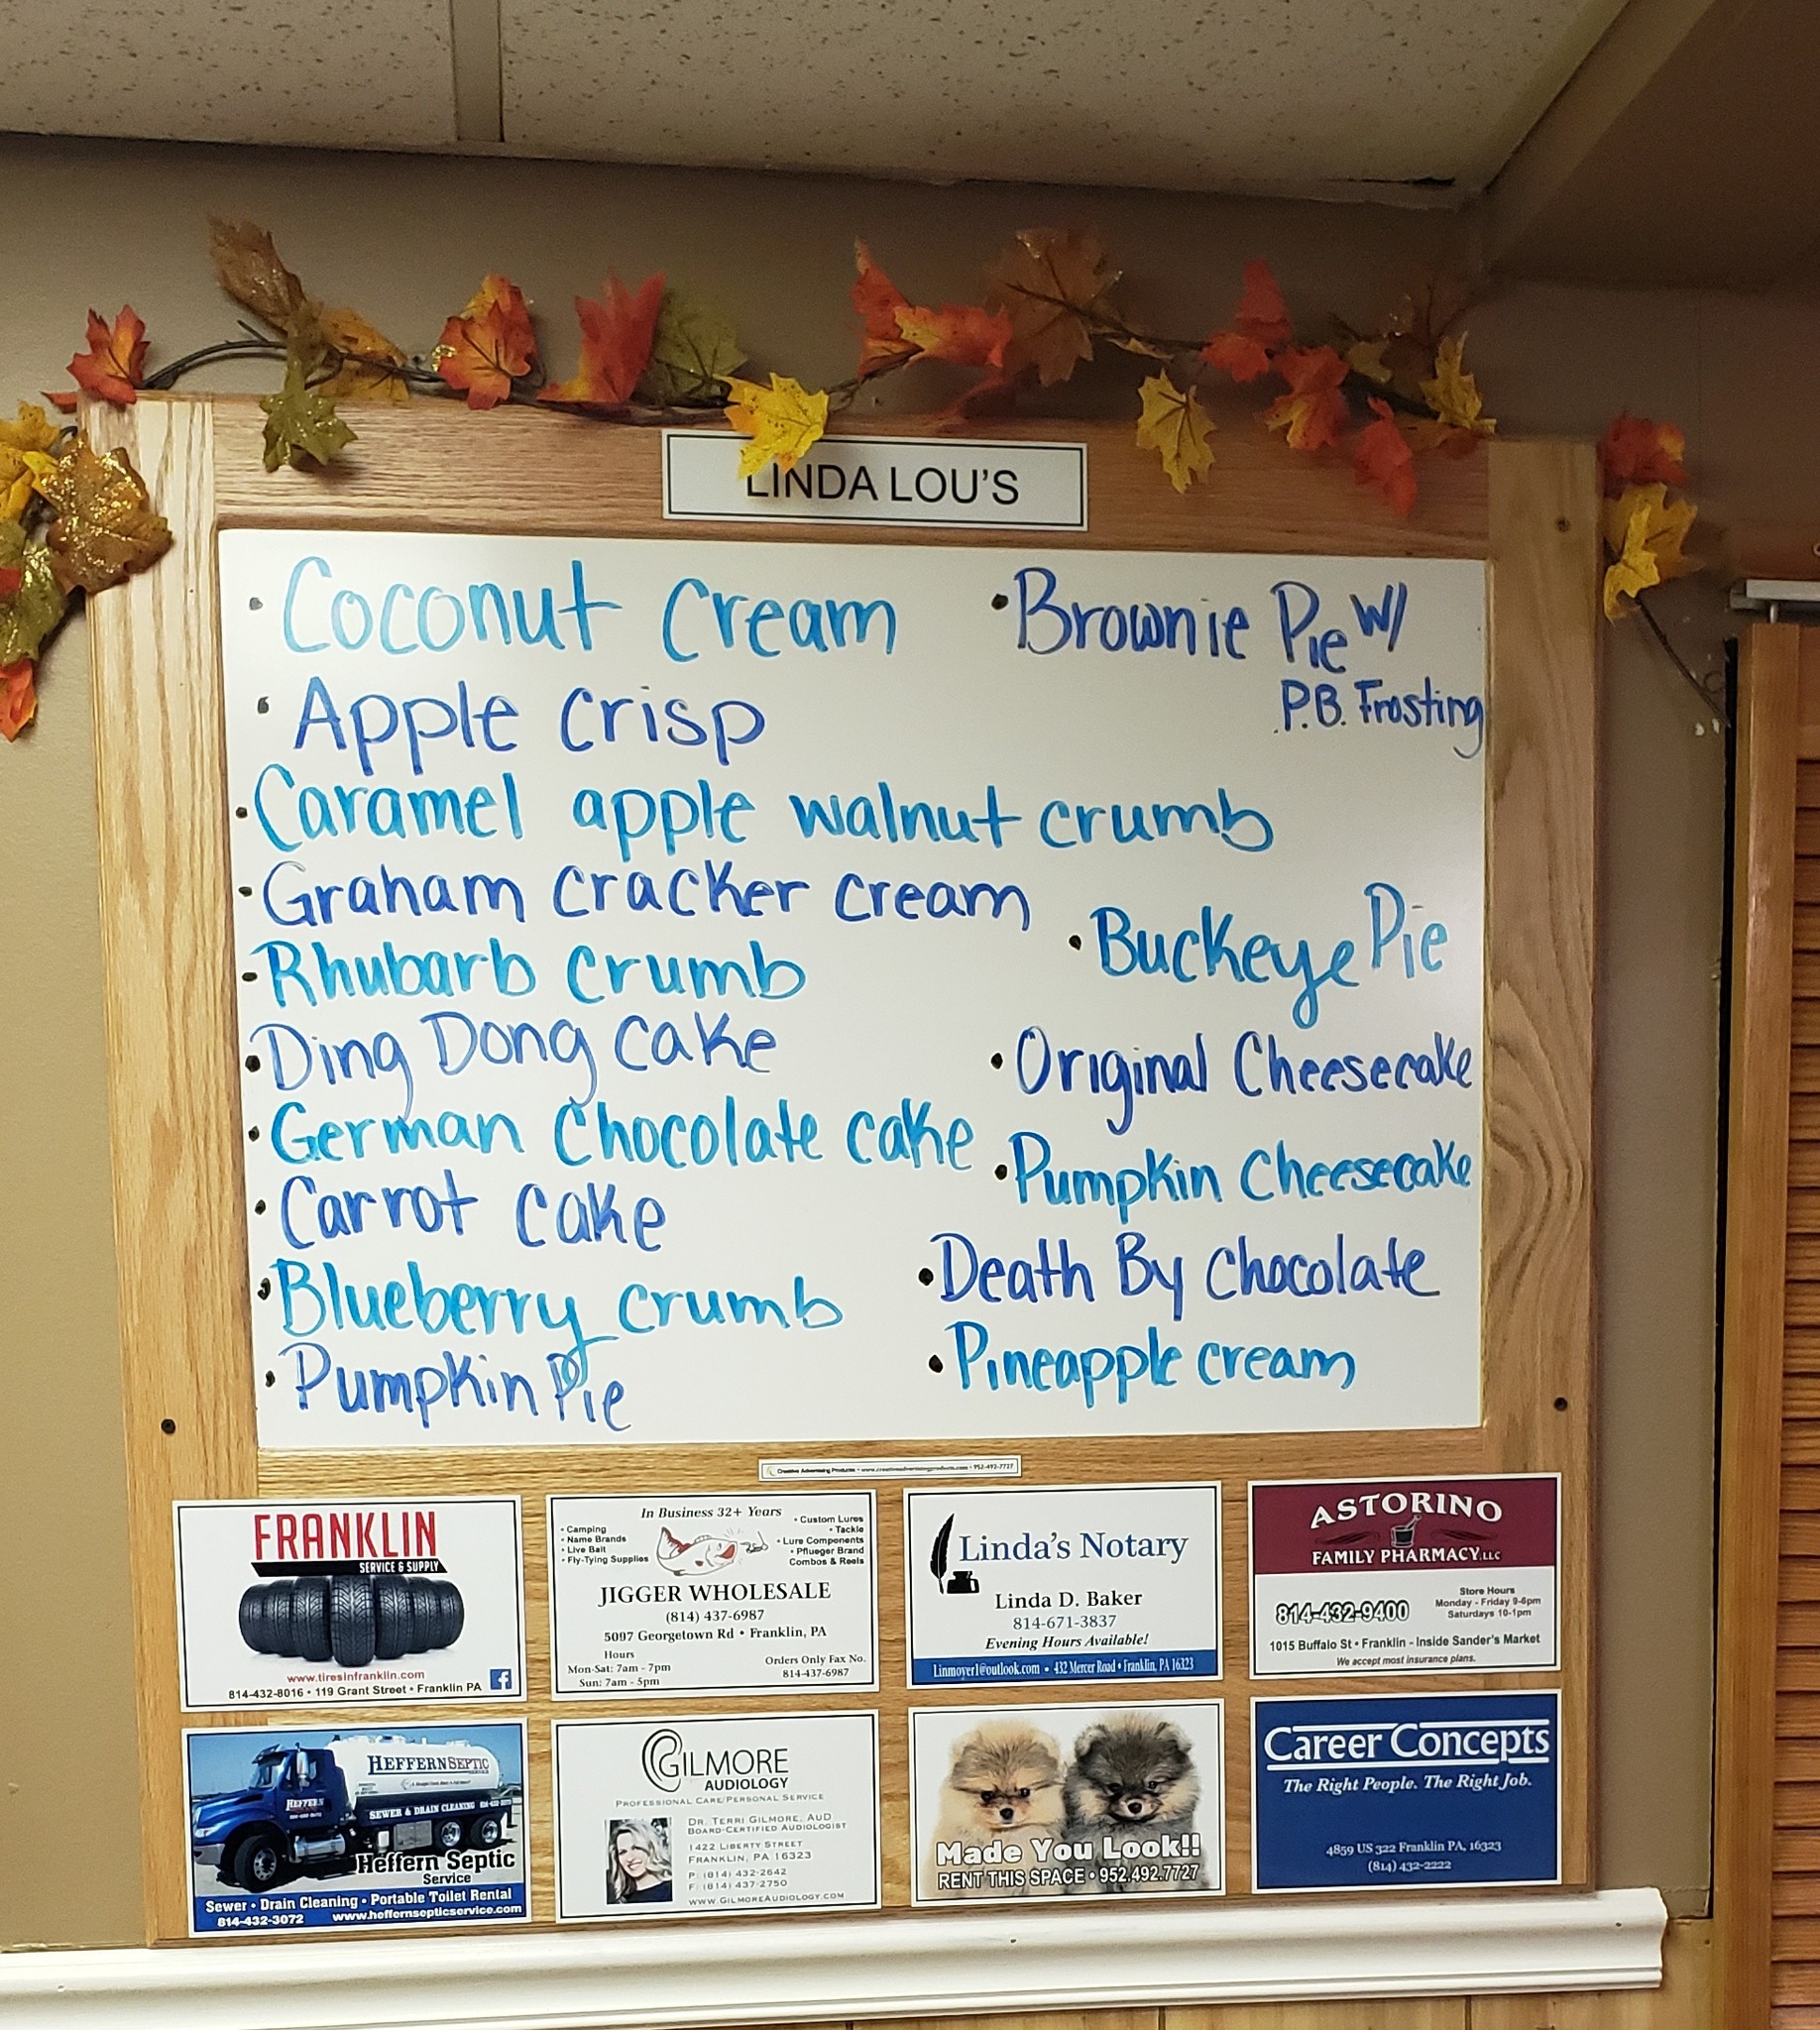 LINDA LOU'S
• Coconut Cream
• Apple Crisp
• Caramel apple walnut crumb
• Graham Cracker Cream
• Rhubarb Crumb
• Ding Dong Cake
• German Chocolate Cake
• Carrot Cake
• Blueberry Crumb
• Pumpkin Pie
• Brownie Pie W/
P.B. Frosting
• Buckeye Pie
• Original Cheesecake
• Pumpkin Cheesecake
• Death By Chocolate
• Pineapple Cream
Creative Advertising Products • www.creativeadvertisingproducts.com • 952-492-7727
FRANKLIN
SERVICE & SUPPLY
www.tiresinfranklin.com
814-432-8016 • 119 Grant Street • Franklin PA
f
In Business 32+ Years
• Camping
• Name Brands
• Live Bait
• Fly-Tying Supplies
• Custom Lures
• Tackle
• Lure Components
• Pflueger Brand
Combos & Reels
JIGGER WHOLESALE
(814) 437-6987
5097 Georgetown Rd • Franklin, PA
Hours
Mon-Sat: 7am - 7pm
Sun: 7am - 5pm
Orders Only Fax No.
814-437-6987
Linda's Notary
Linda D. Baker
814-671-3837
Evening Hours Available!
Linmoyer1@outlook.com • 432 Mercer Road • Franklin, PA 16323
ASTORINO
FAMILY PHARMACY, LLC
814-432-9400
Store Hours
Monday - Friday 9-6pm
Saturdays 10-1pm
1015 Buffalo St • Franklin - Inside Sander's Market
We accept most insurance plans.
HEFFERN SEPTIC
HEFFERN
SEWER & DRAIN CLEANING
Heffern Septic
Service
Sewer • Drain Cleaning • Portable Toilet Rental
814-432-3072 www.heffernsepticservice.com
GILMORE
AUDIOLOGY
PROFESSIONAL CARE/PERSONAL SERVICE
DR. TERRI GILMORE, AUD
BOARD-CERTIFIED AUDIOLOGIST
1422 LIBERTY STREET
FRANKLIN, PA 16323
P: (814) 432-2642
F: (814) 437-2750
WWW.GILMOREAUDIOLOGY.COM
Made You Look!!
RENT THIS SPACE • 952.492.7727
Career Concepts
The Right People. The Right Job.
4859 US 322 Franklin PA, 16323
(814) 432-2222